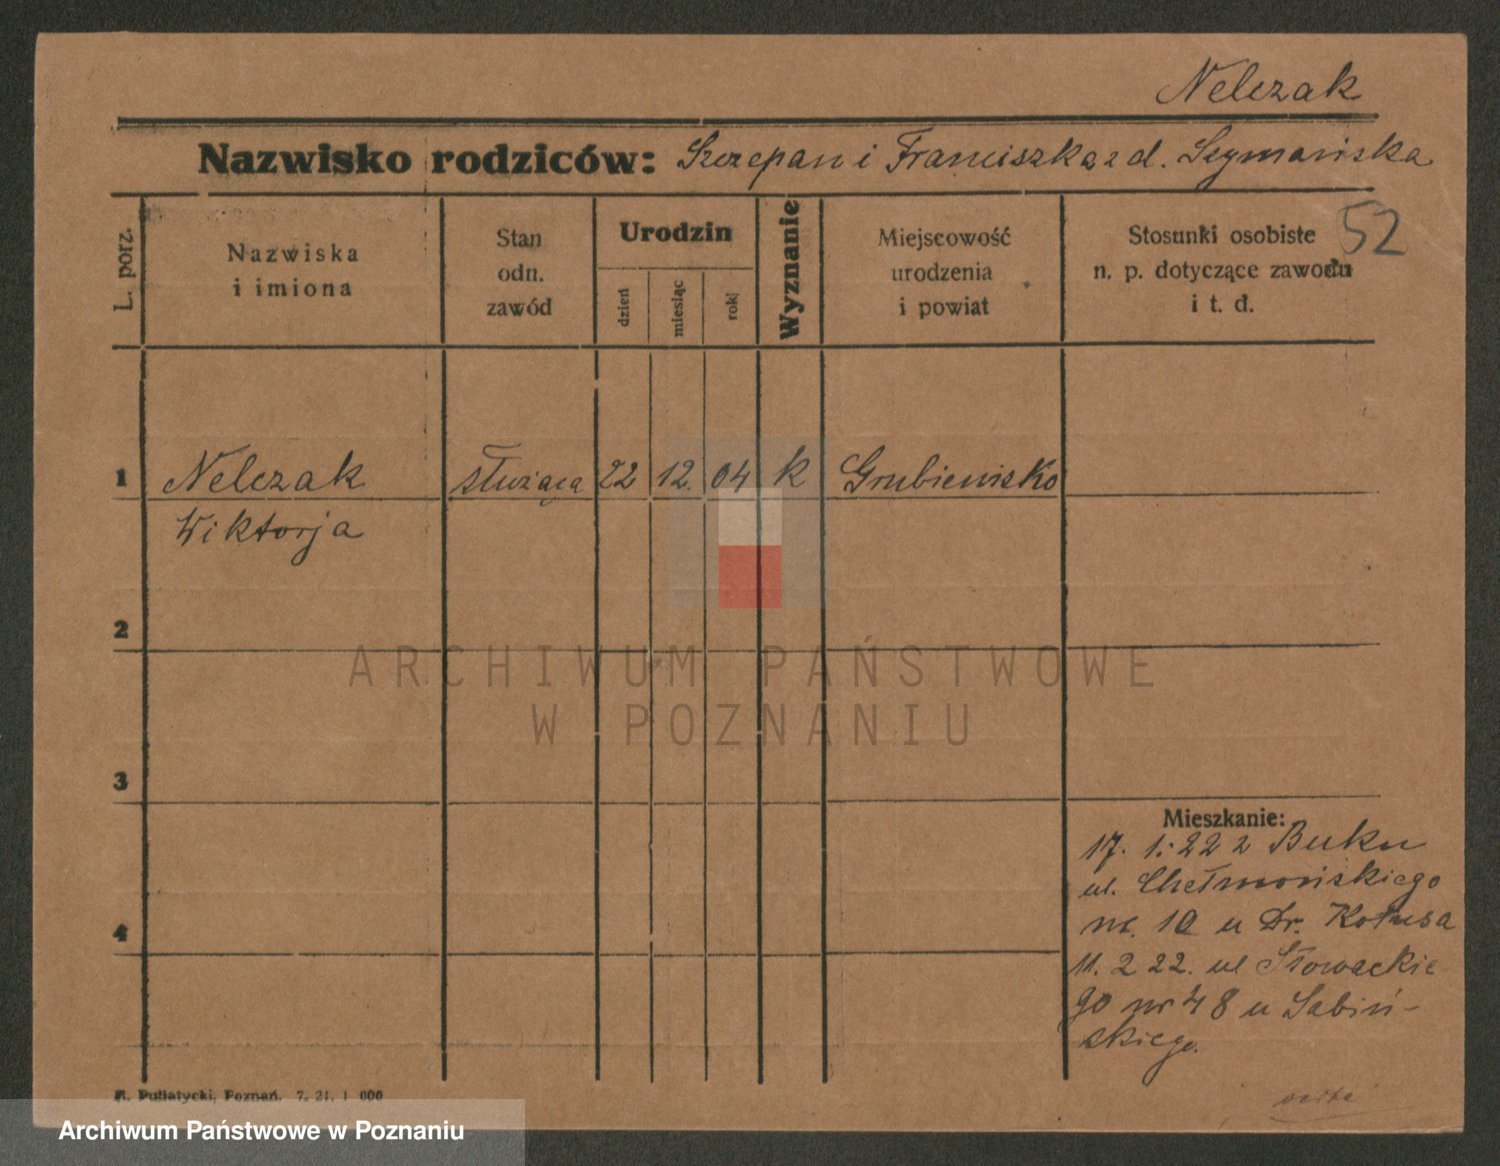 Nelczak
Nazwisko rodziców: Szczepan i Franciszka z d. Szymańska
52
L. porz.
Nazwiska
i imiona
Stan
odn.
zawód
Urodzin
dzień
miesiąc
rok
Wyznanie
Miejscowość
urodzenia
i powiat
Stosunki osobiste
n. p. dotyczące zawodu
i t. d.
1 Nelczak służąca 22 12. 04 k Grubieńsko
Wiktorja
2
3
4
Mieszkanie:
17. 1. 22 z Buku
ul. Chełmońskiego
nr. 10 u Dr. Kotusa
11. 2 22. ul Słowackie
go nr 48 u Sabiń-
skiego.
Putiatycki, Poznań. 7. 21. 1 000
verte
ARCHIWUM PAŃSTWOWE
W POZNANIU
Archiwum Państwowe w Poznaniu